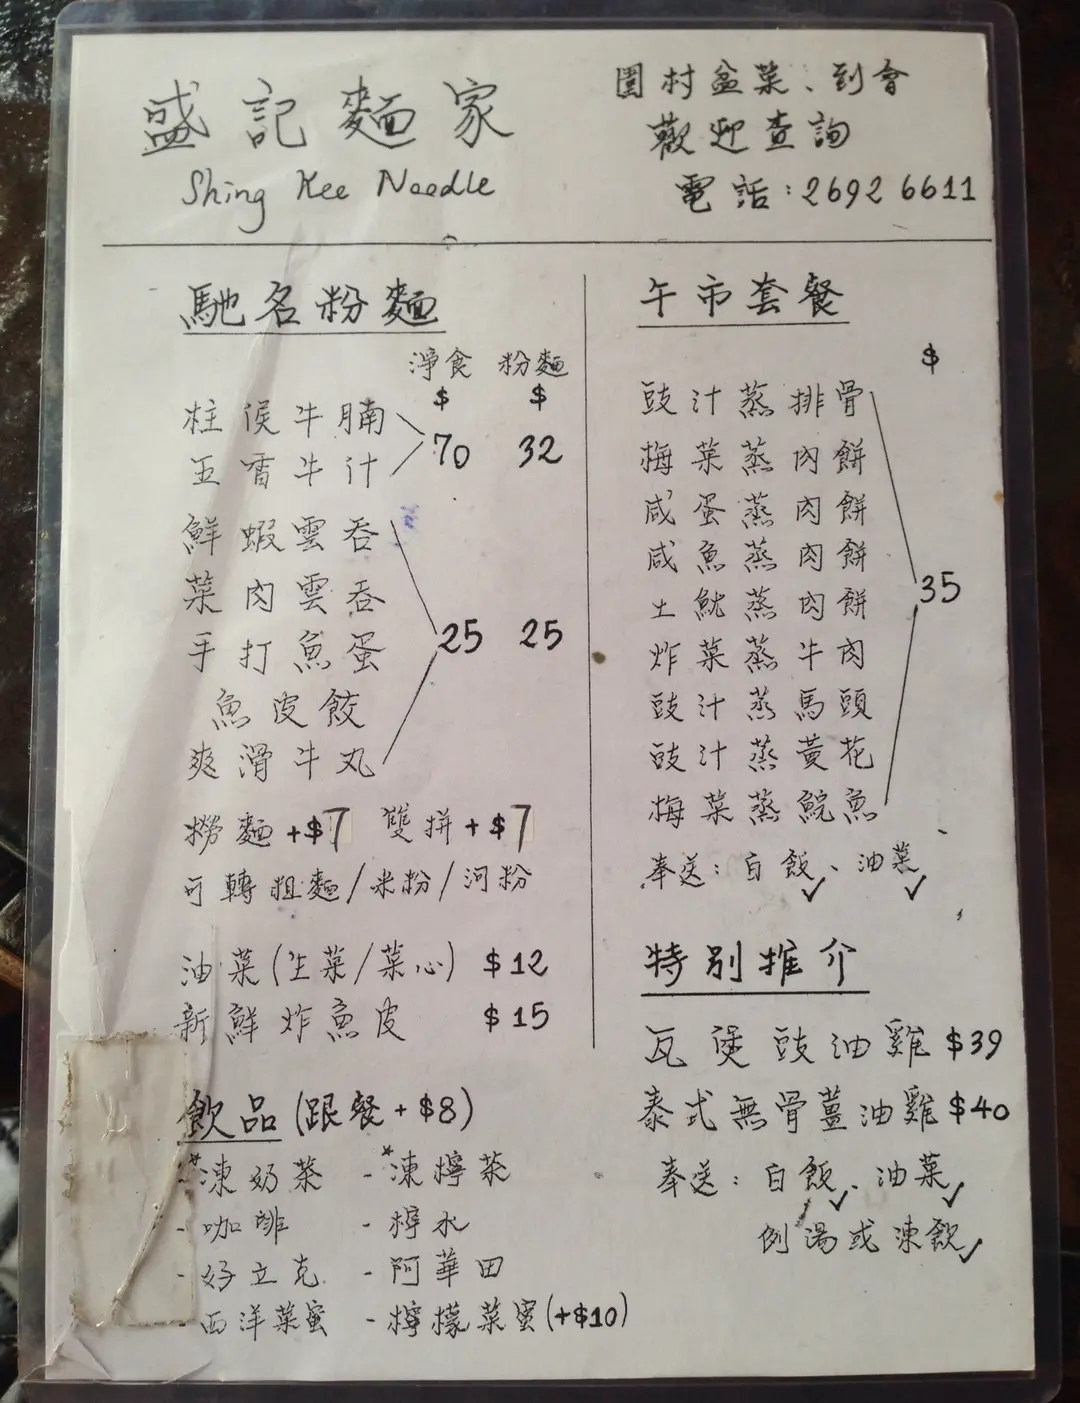 盛記麵家
Shing Kee Noodle
圍村盆菜、到會
歡迎查詢
電話:2692 6611
馳名粉麵
淨食 粉麵
$ $
柱侯牛腩
五香牛汁
70 32
鮮蝦雲吞
菜肉雲吞
手打魚蛋
25 25
魚皮餃
爽滑牛丸
撈麵+$7 雙拼+$7
可轉粗麵/米粉/河粉
油菜(生菜/菜心) $12
新鮮炸魚皮 $15
飲品(跟餐+$8)
-*凍奶茶 -*凍檸茶
-咖啡 -檸水
-好立克 -阿華田
-西洋菜蜜 -檸檬菜蜜(+$10)
午市套餐
$
豉汁蒸排骨
梅菜蒸肉餅
咸蛋蒸肉餅
咸魚蒸肉餅
土魷蒸肉餅
35
炸菜蒸牛肉
豉汁蒸馬頭
豉汁蒸黃花
梅菜蒸鯇魚
奉送:白飯、油菜
特別推介
瓦煲豉油雞 $39
泰式無骨薑油雞 $40
奉送:白飯、油菜、
例湯或凍飲